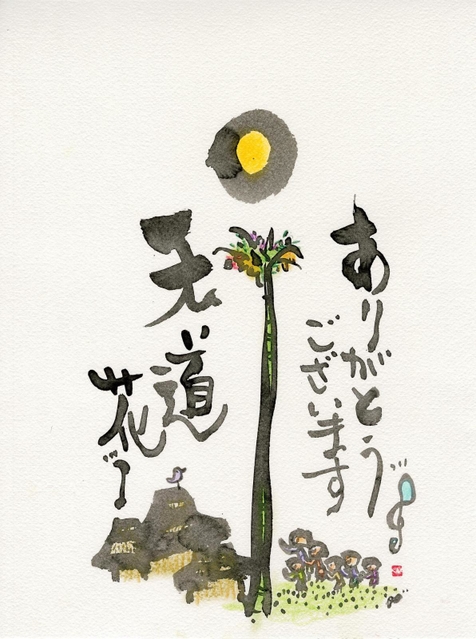 ありがとう
ございます
天道花